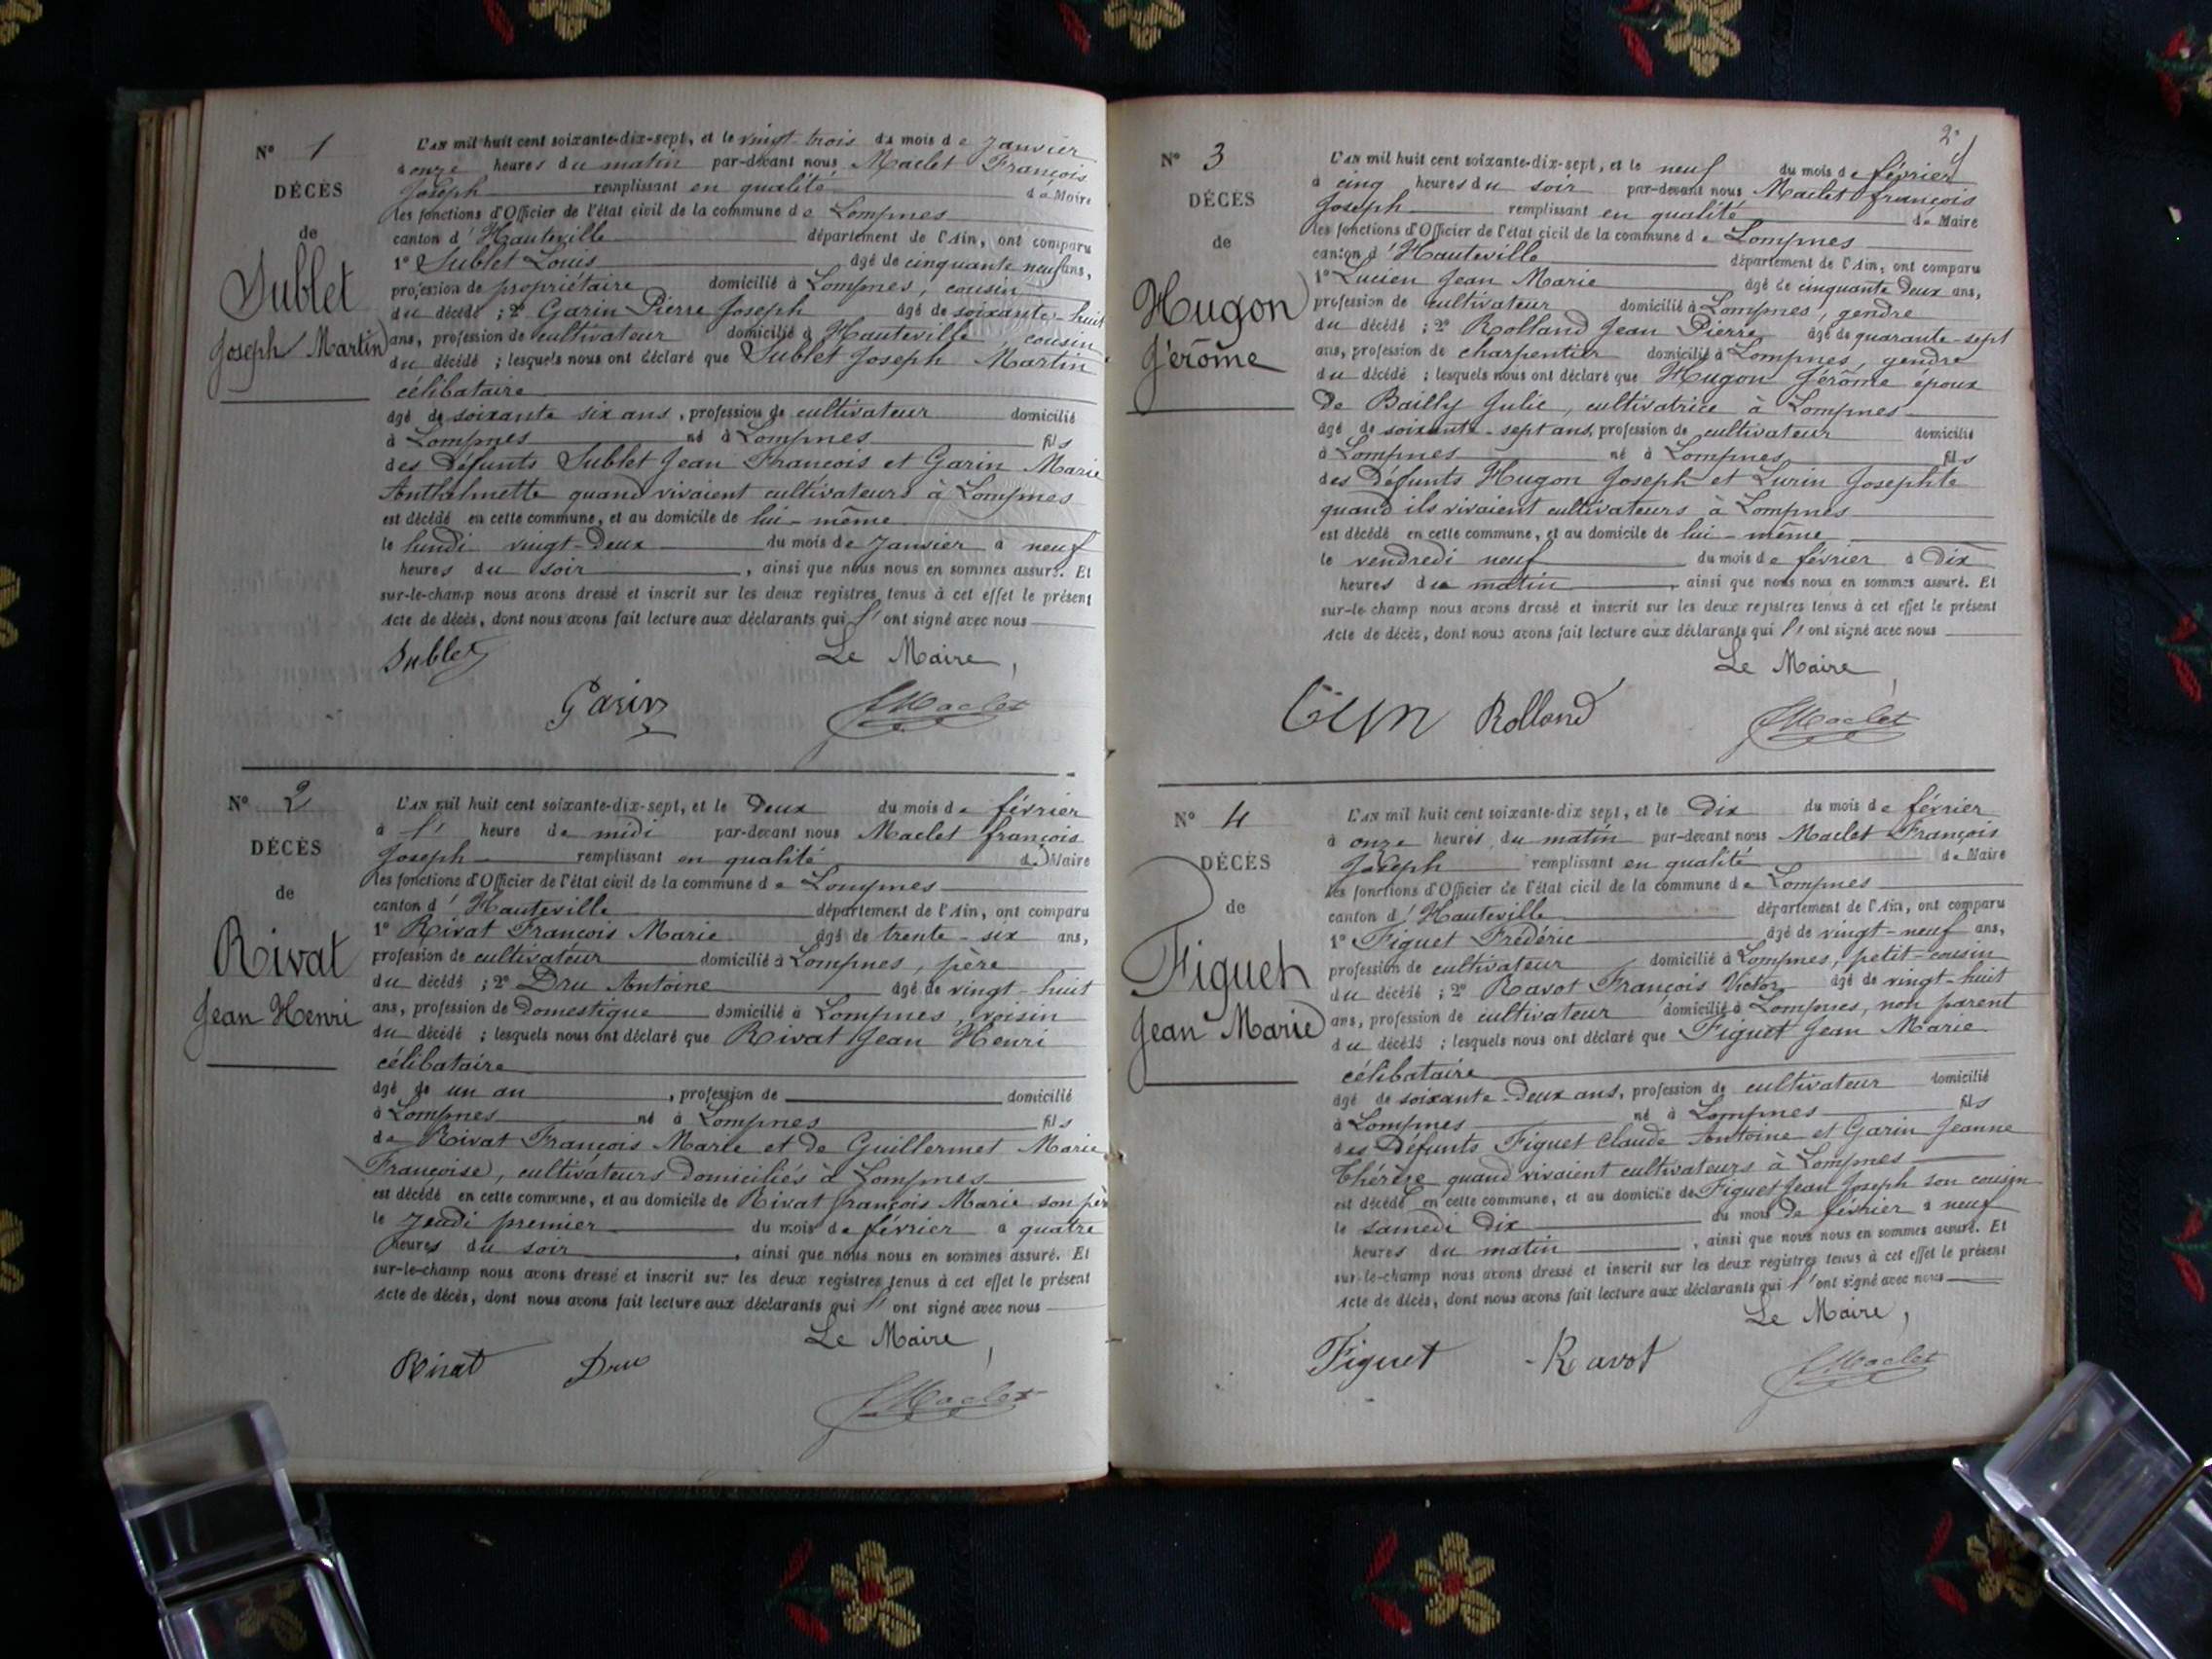 N° 1
DÉCÈS
de
Sublet
Joseph Martin
L'AN mil huit cent soixante-dix-sept, et le vingt-trois du mois de Janvier
à onze heures du matin par-devant nous Maclet François
Joseph remplissant en qualité de Maire
les fonctions d'Officier de l'état civil de la commune de Lompnes
canton d'Hauteville département de l'Ain, ont comparu
1° Sublet Louis âgé de cinquante neuf ans,
profession de propriétaire domicilié à Lompnes, cousin
du décédé ; 2° Garin Pierre Joseph âgé de soixante-huit
ans, profession de cultivateur domicilié à Hauteville, cousin
du décédé ; lesquels nous ont déclaré que Sublet Joseph Martin
célibataire
âgé de soixante six ans, profession de cultivateur domicilié
à Lompnes né à Lompnes fils
des défunts Sublet Jean François et Garin Marie
Anthelmette quand vivaient cultivateurs à Lompnes
est décédé en cette commune, et au domicile de lui-même
le lundi vingt-deux du mois de Janvier à neuf
heures du soir, ainsi que nous nous en sommes assuré. Et
sur-le-champ nous avons dressé et inscrit sur les deux registres tenus à cet effet le présent
Acte de décès, dont nous avons fait lecture aux déclarants qui l'ont signé avec nous
Le Maire,
Sublet
Garin
Maclet
N° 2
DÉCÈS
de
Rivat
Jean Henri
L'AN mil huit cent soixante-dix-sept, et le deux du mois de février
à l' heure de midi par-devant nous Maclet françois
Joseph remplissant en qualité de Maire
les fonctions d'Officier de l'état civil de la commune de Lompnes
canton d'Hauteville département de l'Ain, ont comparu
1° Rivat François Marie âgé de trente-six ans,
profession de cultivateur domicilié à Lompnes, père
du décédé ; 2° Dru Antoine âgé de vingt-huit
ans, profession de domestique domicilié à Lompnes, voisin
du décédé ; lesquels nous ont déclaré que Rivat Jean Henri
célibataire
âgé de un an, profession de domicilié
à Lompnes né à Lompnes fils
de Rivat François Marie et de Guillermet Marie
Françoise, cultivateurs domiciliés à Lompnes
est décédé en cette commune, et au domicile de Rivat françois Marie son père
le Jeudi premier du mois de février à quatre
heures du soir, ainsi que nous nous en sommes assuré. Et
sur-le-champ nous avons dressé et inscrit sur les deux registres tenus à cet effet le présent
Acte de décès, dont nous avons fait lecture aux déclarants qui l'ont signé avec nous
Le Maire,
Rivat Dru
Maclet
2
N° 3
DÉCÈS
de
Hugon
Jérôme
L'AN mil huit cent soixante-dix-sept, et le neuf du mois de février
à cinq heures du soir par-devant nous Maclet françois
Joseph remplissant en qualité de Maire
les fonctions d'Officier de l'état civil de la commune de Lompnes
canton d'Hauteville département de l'Ain, ont comparu
1° Lucien Jean Marie âgé de cinquante deux ans,
profession de cultivateur domicilié à Lompnes, gendre
du décédé ; 2° Rolland Jean Pierre âgé de quarante-sept
ans, profession de charpentier domicilié à Lompnes, gendre
du décédé ; lesquels nous ont déclaré que Hugon Jérôme époux
de Bailly Julie, cultivatrice à Lompnes
âgé de soixante-sept ans, profession de cultivateur domicilié
à Lompnes né à Lompnes fils
des défunts Hugon Joseph et Livrin Josephte
quand ils vivaient cultivateurs à Lompnes
est décédé en cette commune, et au domicile de lui-même
le vendredi neuf du mois de février à dix
heures du matin, ainsi que nous nous en sommes assuré. Et
sur-le-champ nous avons dressé et inscrit sur les deux registres tenus à cet effet le présent
Acte de décès, dont nous avons fait lecture aux déclarants qui l'ont signé avec nous
Le Maire,
Rolland
Maclet
N° 4
DÉCÈS
de
Figuet
Jean Marie
L'AN mil huit cent soixante-dix sept, et le dix du mois de février
à onze heures du matin par-devant nous Maclet François
Joseph remplissant en qualité de Maire
les fonctions d'Officier de l'état civil de la commune de Lompnes
canton d'Hauteville département de l'Ain, ont comparu
1° Figuet Frédéric âgé de vingt-neuf ans,
profession de cultivateur domicilié à Lompnes, petit-cousin
du décédé ; 2° Ravot François Victor âgé de vingt-huit
ans, profession de cultivateur domicilié à Lompnes, non parent
du décédé ; lesquels nous ont déclaré que Figuet Jean Marie
célibataire
âgé de soixante-deux ans, profession de cultivateur domicilié
à Lompnes né à Lompnes fils
des défunts Figuet Claude Antoine et Garin Jeanne
Thérèze quand vivaient cultivateurs à Lompnes
est décédé en cette commune, et au domicile de Figuet Jean Joseph son cousin
le samedi dix du mois de février à neuf
heures du matin, ainsi que nous nous en sommes assuré. Et
sur-le-champ nous avons dressé et inscrit sur les deux registres tenus à cet effet le présent
Acte de décès, dont nous avons fait lecture aux déclarants qui l'ont signé avec nous
Le Maire,
Figuet Ravot
Maclet